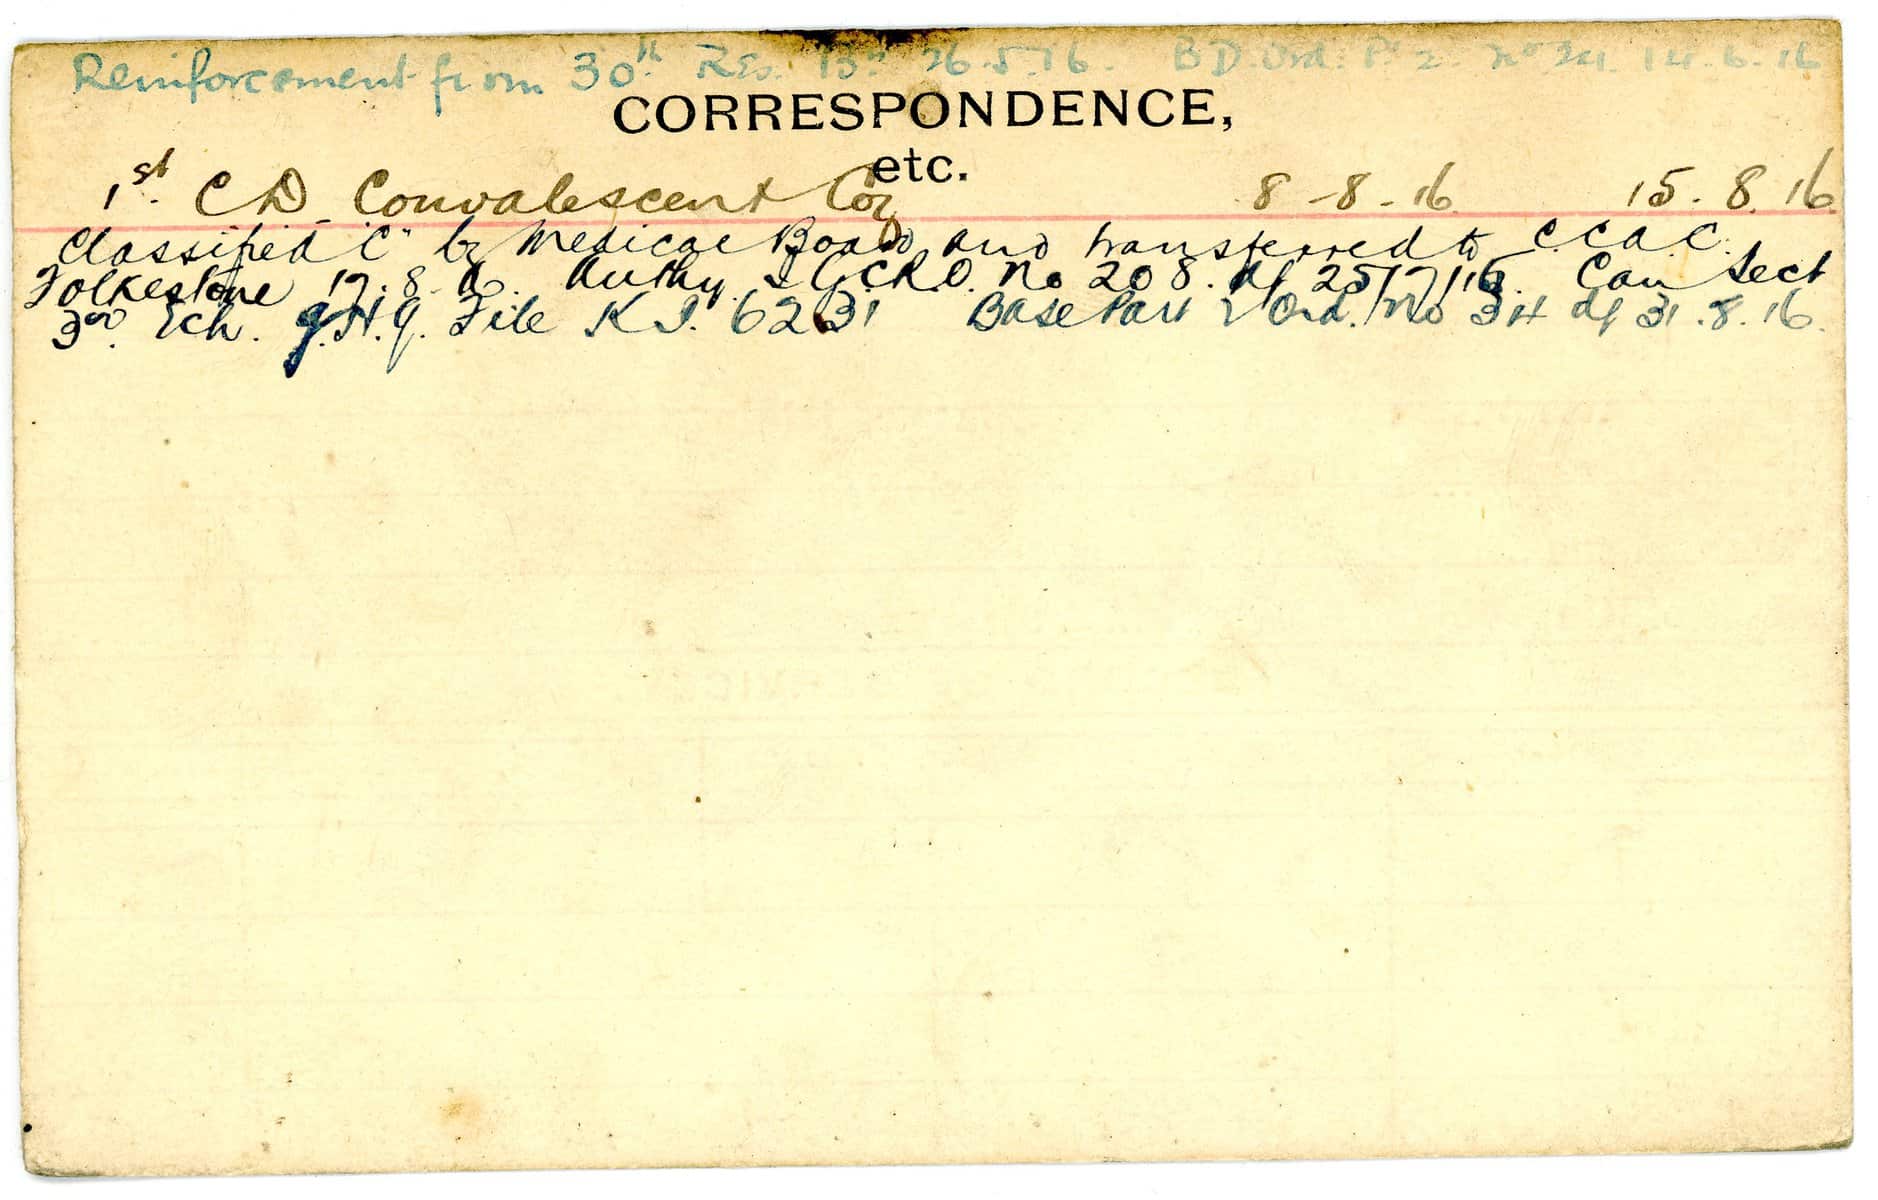 Reinforcement from 30th Res. Bn 26.5.16. B D. Ord. Pt 2. No 24. 14.6.16
CORRESPONDENCE,
etc.
1st. C D Convalescent Coy 8-8-16 15.8.16
Classified "C" by Medical Board and transferred to C.C.A.C.
Folkestone 17.8.16. Authy. No 208. df 25/7/16. Can Sect
3rd Ech. G.H.Q. File K.I. 6231 Base Part 2 Ord. No 34 df 31.8.16.